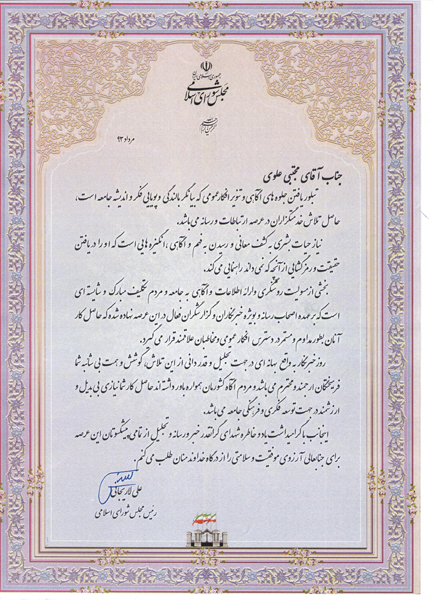 جمهوری اسلامی ایران
مجلس شورای اسلامی
مرداد ۹۳
جناب آقای مجتبی علوی
تبلور یافتن جلوه های آگاهی و تنویر افکار عمومی که بیانگر بالندگی و پویایی فکر و اندیشه جامعه است،
حاصل تلاش خدمتگزاران در عرصه ارتباطات و رسانه می باشد.
نیاز حیات بشری به کشف معانی و رسیدن به فهم و آگاهی، انگیزه هایی است که او را در یافتن
حقیقت و رمزگشایی از آنچه که نمی داند راهنمایی می کند.
بخشی از مسولیت روشنگری و ارائه اطلاعات و آگاهی به جامعه و مردم تکلیف مبارک و شایسته ای
است که بر عهده اصحاب رسانه و بویژه خبرنگاران و گزارشگران فعال در این عرصه نهاده شده که حاصل کار
آنان بطور مداوم و مستمر در دسترس افکار عمومی و مخاطبان علاقمند قرار می گیرد.
روز خبرنگار به واقع بهانه ای در جهت تجلیل و قدردانی از این تلاش، کوشش و همت بی شائبه شما
فرهیختگان ارجمند و محترم می باشد و مردم آگاه کشورمان همواره باور داشته اند حاصل کار شما نیازی بی بدیل و
ارزشمند در جهت توسعه فکری و فرهنگی جامعه می باشد.
اینجانب با گرامیداشت یاد و خاطره شهدای گرانقدر خبر و رسانه و تجلیل از تمامی پیشکسوتان این عرصه
برای جنابعالی آرزوی موفقیت و سلامتی را از درگاه خداوند منان طلب می کنم.
علی لاریجانی
رئیس مجلس شورای اسلامی